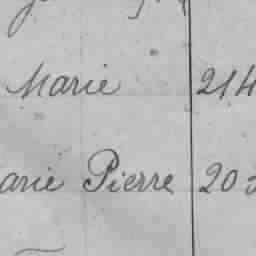 Marie 214
arie Pierre 20